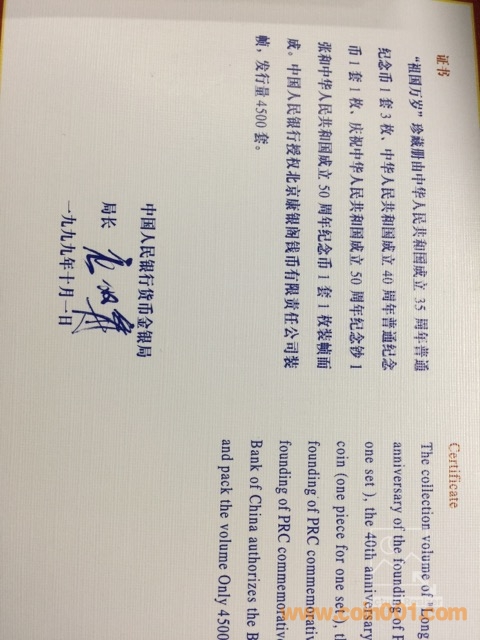 证书
“祖国万岁”珍藏册由中华人民共和国成立 35 周年普通
纪念币 1 套 3 枚、中华人民共和国成立 40 周年普通纪念
币 1 套 1 枚、庆祝中华人民共和国成立 50 周年纪念钞 1
张和中华人民共和国成立 50 周年纪念币 1 套 1 枚装帧而
成。中国人民银行授权北京康银阁钱币有限责任公司装
帧，发行量 4500 套。
中国人民银行货币金银局
局长
一九九九年十月一日
Certificate
The collection volume of "Long
anniversary of the founding of
one set ), the 40th anniversary
coin (one piece for one set),
founding of PRC commemorativ
founding of PRC commemorative
Bank of China authorizes the B
and pack the volume Only 4500
www.coin001.com